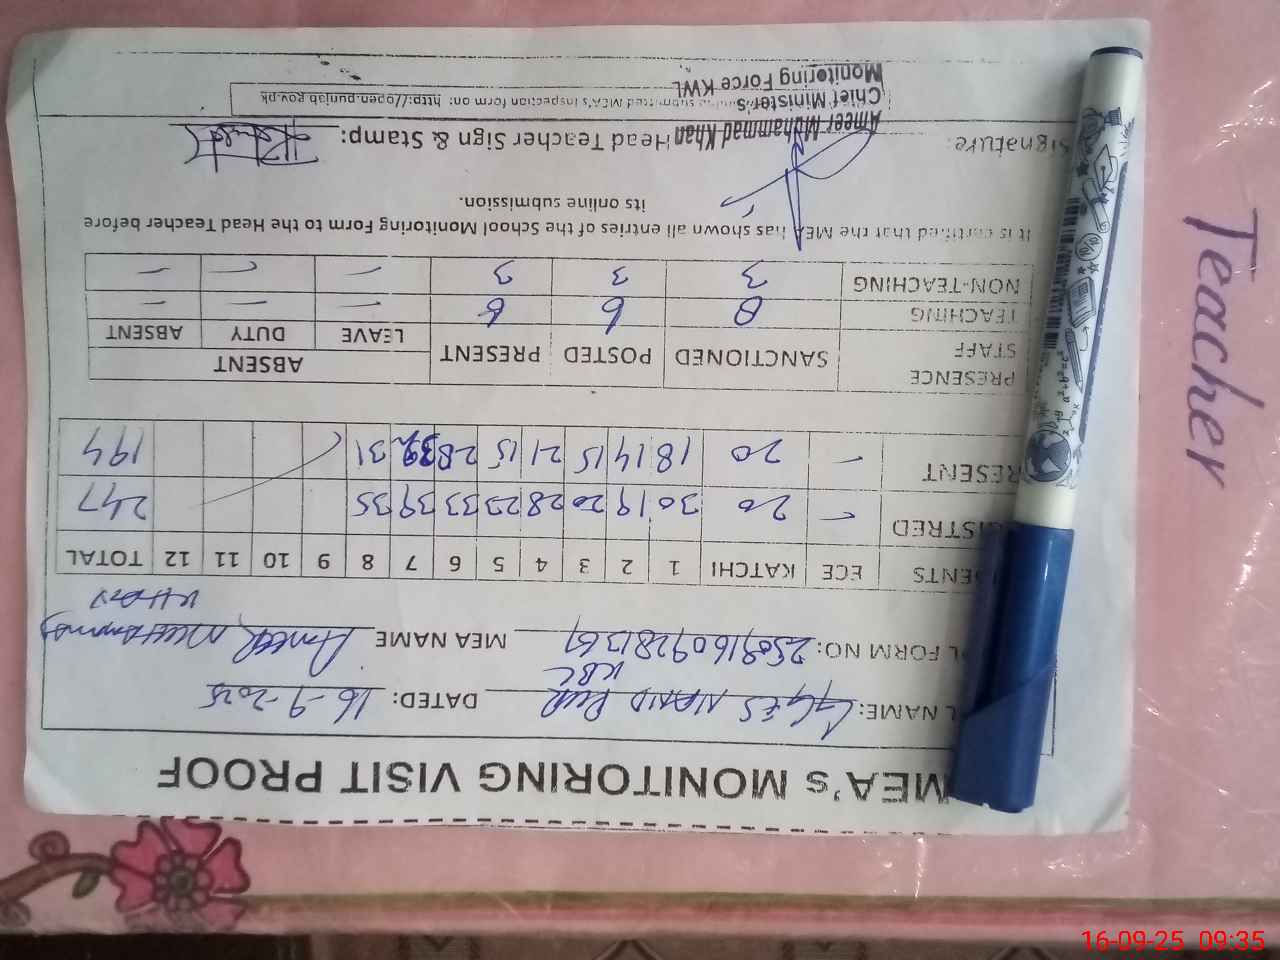 MEA's MONITORING VISIT PROOF
L NAME: GGES PUR DATED: 16-9-2025
KBC
L FORM NO: MEA NAME AMEER MUHAMMAD
KHAN
DENTS ECE KATCHI 1 2 3 4 5 6 7 8 9 10 11 12 TOTAL
ISTRED - 20 30 19 20 28 23 33 39 35 247
RESENT - 20 18 14 15 21 15 28 32 31 194
PRESENCE STAFF SANCTIONED POSTED PRESENT ABSENT
LEAVE DUTY ABSENT
TEACHING 8 6 6 - - -
NON-TEACHING 3 3 3 - - -
It is certified that the MEA has shown all entries of the School Monitoring Form to the Head Teacher before
its online submission.
Signature: Head Teacher Sign & Stamp:
Ameer Muhammad Khan
Chief Minister's
Monitoring Force KWL
submitted MEA's inspection form on: http://open.punjab.gov.pk
Teacher
16-09-25 09:35